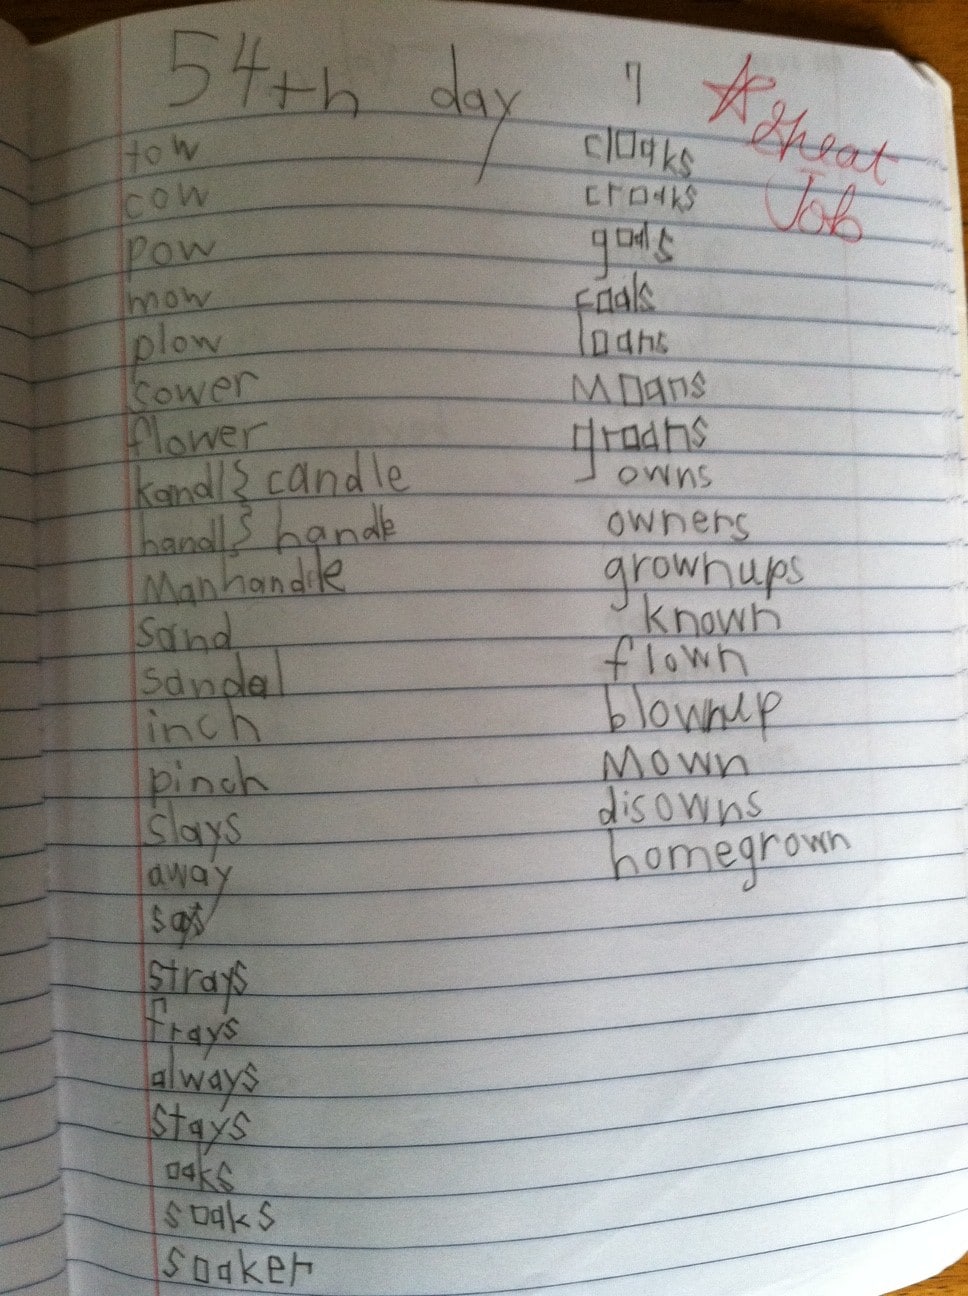 54th day 7
Great
Job
tow
cow
pow
mow
plow
cower
flower
kandl} candle
handl} handle
Manhandle
sand
sandal
inch
pinch
slays
away
says
strays
frays
always
stays
oaks
soaks
soaker
cloaks
croaks
goals
foals
loans
Moans
groans
owns
owners
grownups
known
flown
blownup
Mown
disowns
homegrown